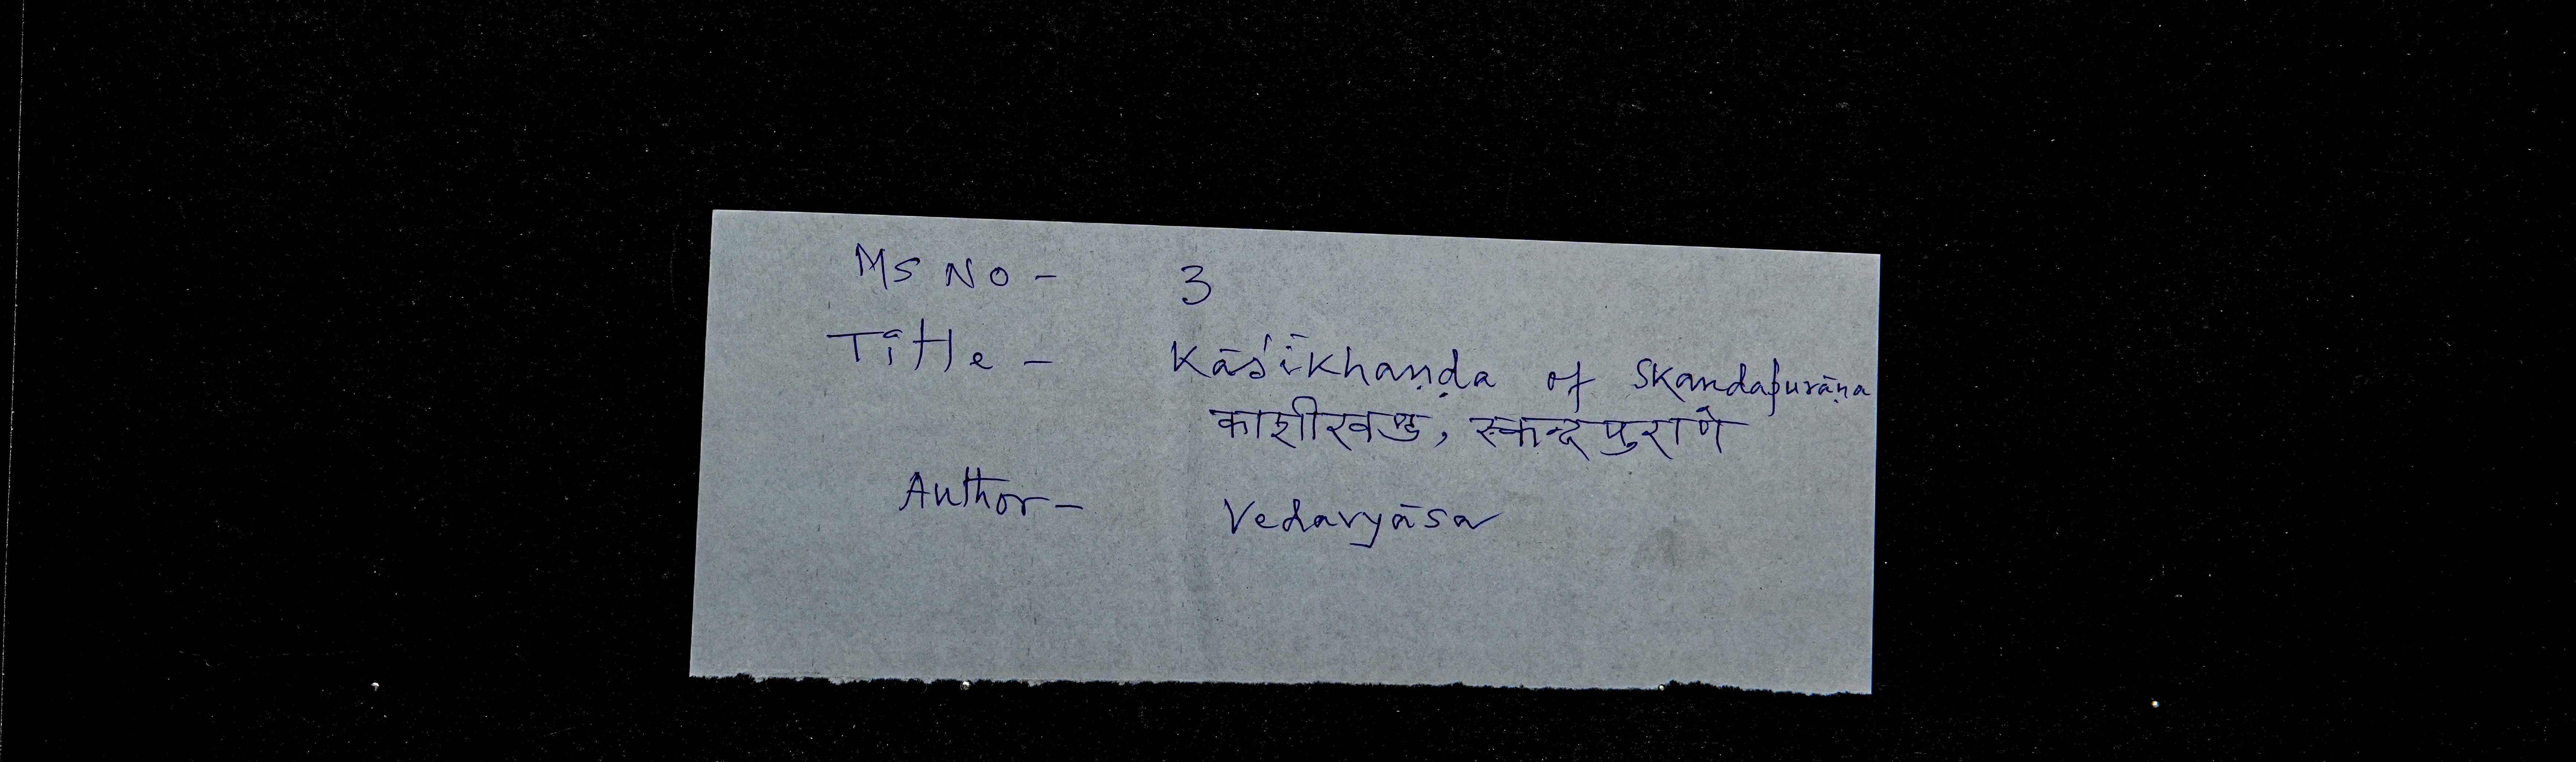 Ms No - 3
Title - Kāśīkhaṇḍa of Skandapurāṇa
काशीखण्ड, स्कन्दपुराणे
Author - Vedavyāsa